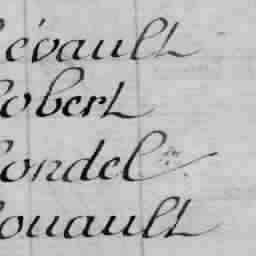 évault
obert
ondel
ouault